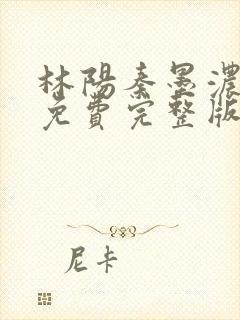 林陽秦墨濃
免費完整版
尼卡